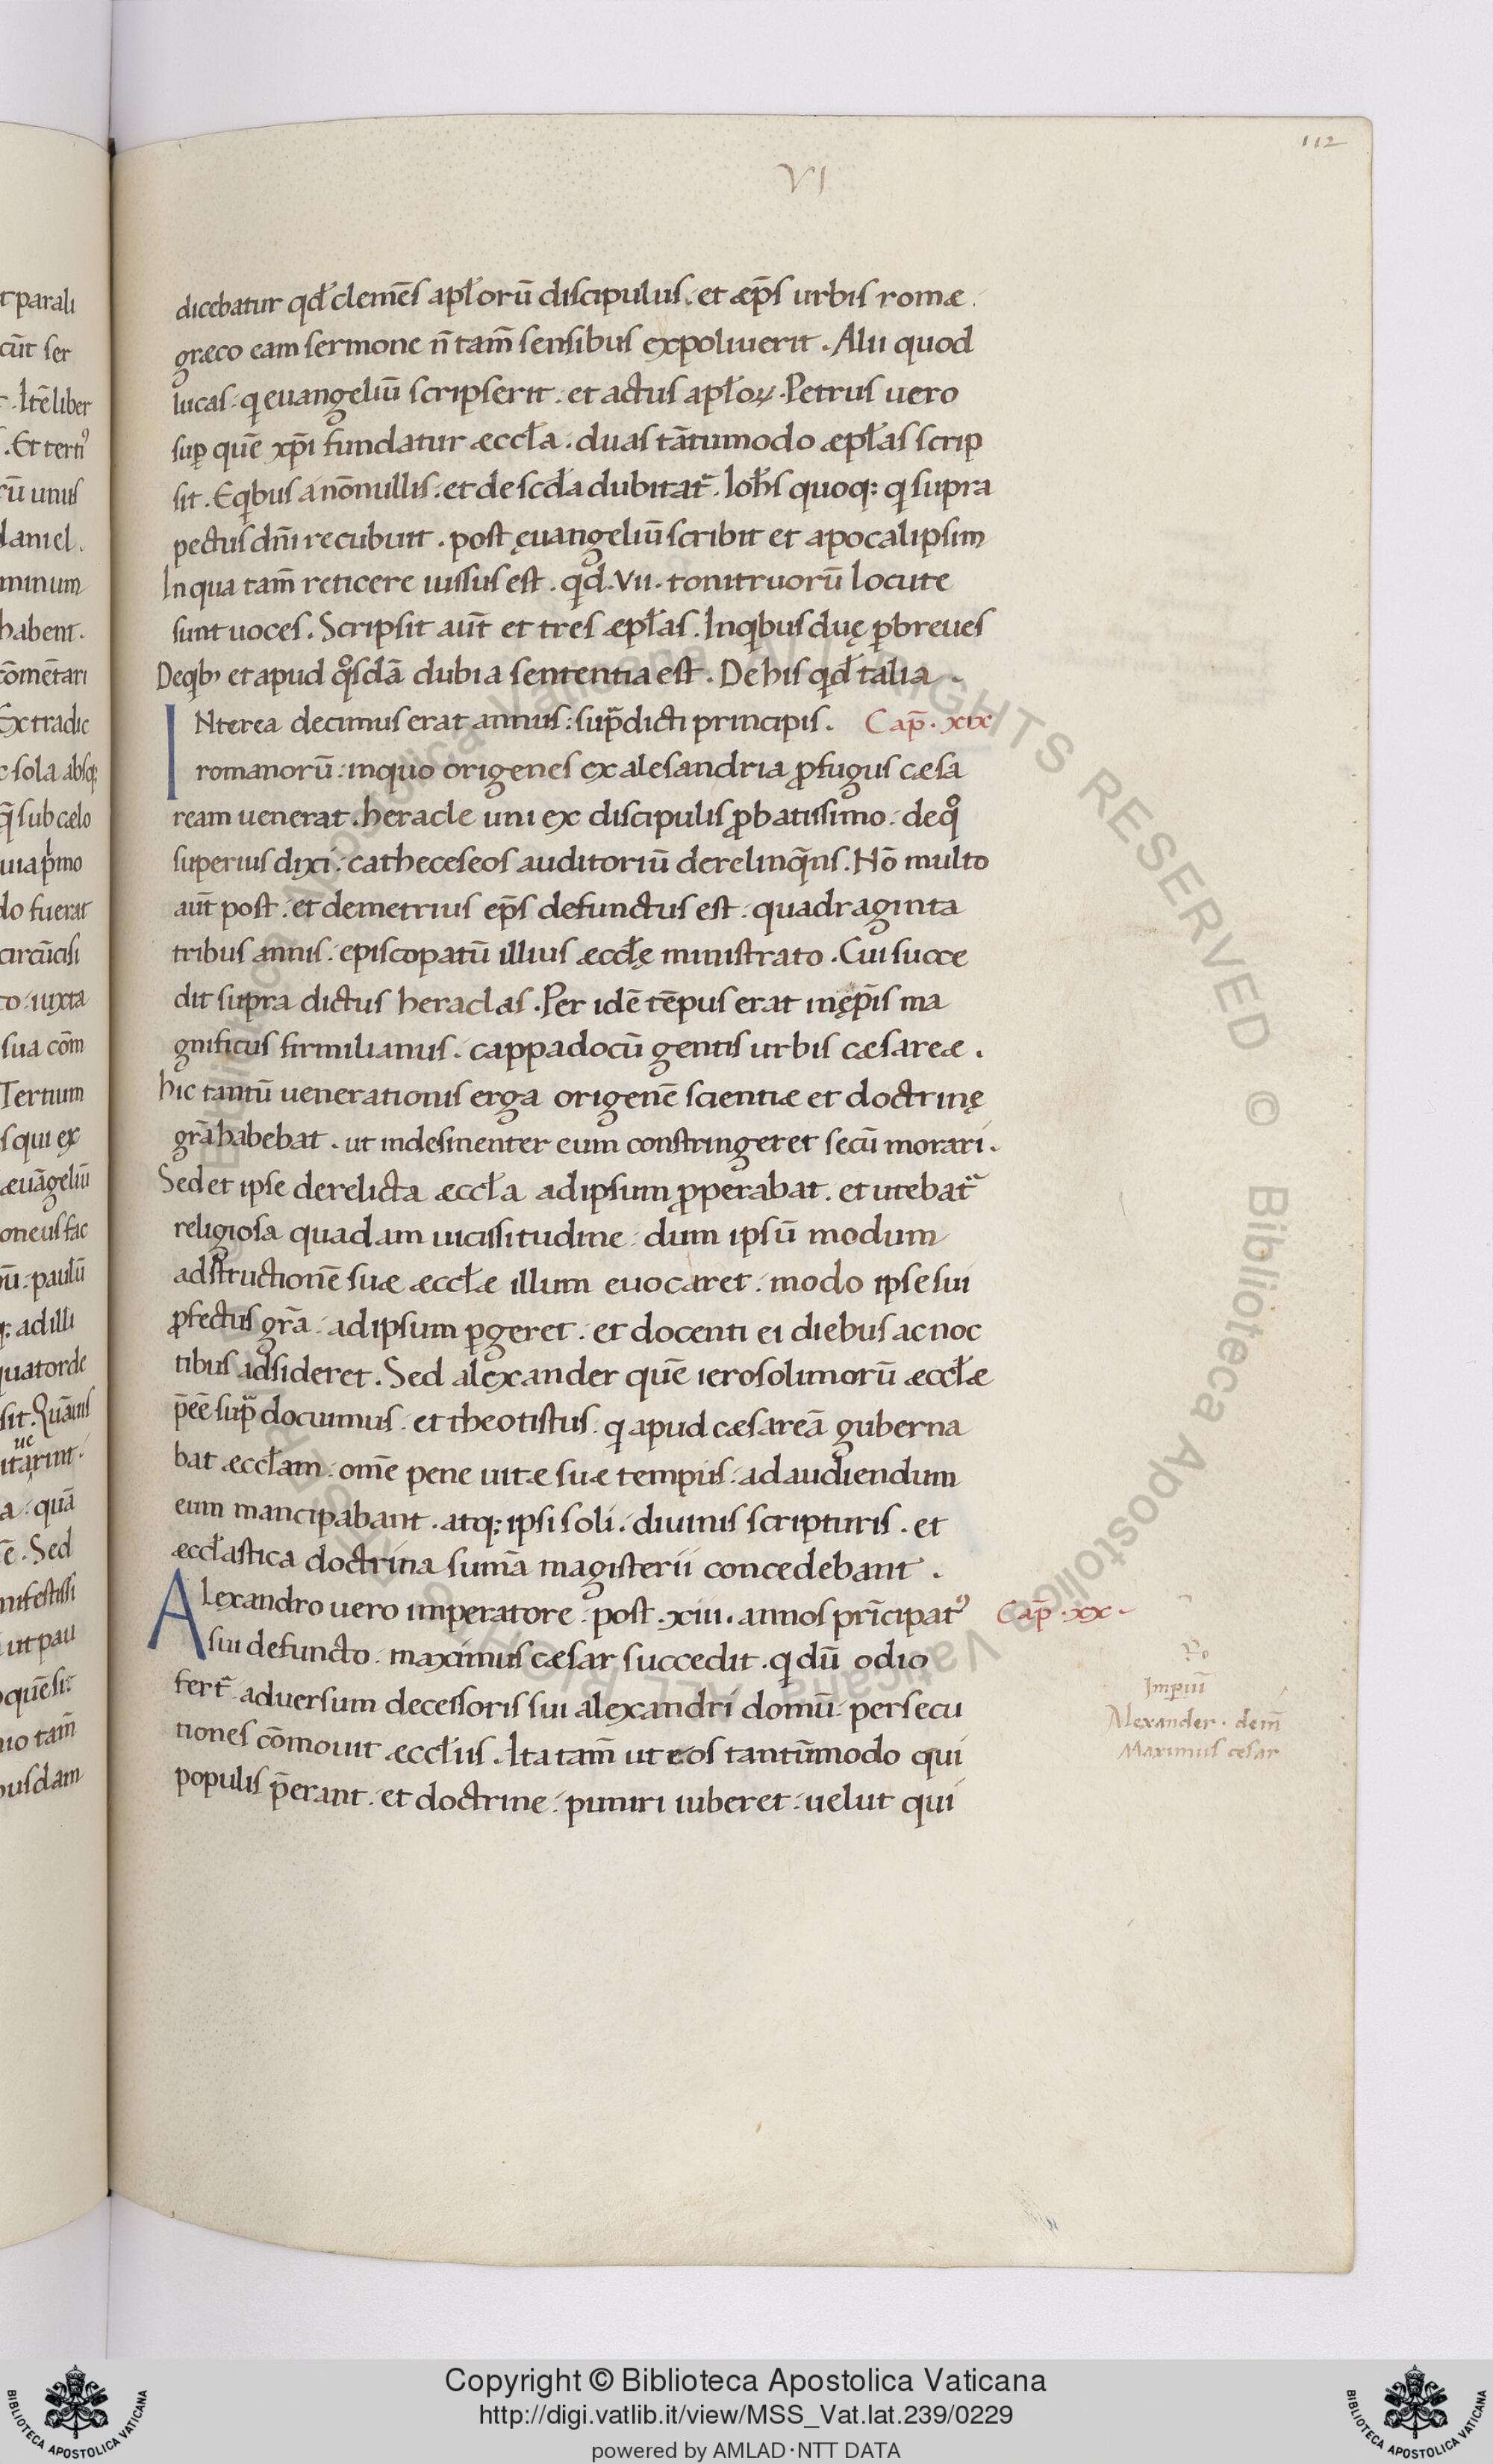 112
VI
dicebatur qđ clemēs apłorū discipulus. et æp̄s urbis romæ.
græco eam sermone n̄ tam̄ sensibus expoliuerit. Alii quod
lucas. qi euangeliū scripserit. et actus apłoꝝ. Petrus uero
suꝑ quē xp̄i fundatur æccła. duas tātumodo æpłas scrip
sit. Eqibus a nōnullis. et de scđa dubitat᷑. Ioħs quoq; qi supra
pectus dn̄i recubuit. post ęuangeliū scribit et apocalipsim
In qua tam̄ reticere iussus est. qđ. VII. tonitruorū locute
sunt uoces. Scripsit aūt et tres æpłas. Inqibus duę ꝑbreues
Deqib; et apud qosdā dubia sententia est. De his qđ talia
INterea decimus erat annus. supͣdicti principis. Cap̄. xix
romanorū. inquo origenes ex alesandria ꝓfugus cæsa
ream uenerat. heracle uni ex discipulis ꝓbatissimo. deqo
superius dixi. catheceseos auditoriū derelinq̄ns. Nō multo
aūt post. et demetrius ep̄s defunctus est. quadraginta
tribus annis. episcopatū illius æccłę ministrato. Cui succe
dit supra dictus heraclas. Per idē tēpus erat inęp̄is ma
gnificus firmilianus. cappadocū gentis urbis cæsareæ.
hic tantū uenerationis erga origenē scientiæ et doctrinę
gr̄a habebat. ut indesinenter eum constringeret secū morari.
Sed et ipse derelicta æccła adipsum ꝓperabat. et utebat᷑
religiosa quadam uicissitudine. dum ipsū modum
adstructionē suæ æccłæ illum euocaret. modo ipse sui
ꝓfectus gr̄a. adipsum ꝑgeret. et docenti ei diebus ac noc
tibus adsideret. Sed alexander quē ierosolimorū æccłæ
p̄eē supͣ docuimus. et theotistus. qi apud cæsareā guberna
bat æccłam. omē pene uitæ suæ tempus. ad audiendum
eum mancipabant. atq; ipsi soli. diuinis scripturis. et
æccłastica doctrina sumā magisterii concedebant.
Alexandro uero imperatore. post. xiii. annos prīcipatꝰ Cap̄. xx.
sui defuncto. maximus cæsar succedit. qi dū odio
fert᷑. aduersum decessoris sui alexandri domū. persecu
tiones cōmouit æccłiis. Ita tam̄ ut eos tantūmodo qui
populis p̄erant. et doctrine. puniri iuberet. uelut qui
Alexander. dem̄
Maximus cesar
Copyright © Biblioteca Apostolica Vaticana
http://digi.vatlib.it/view/MSS_Vat.lat.239/0229
powered by AMLAD·NTT DATA